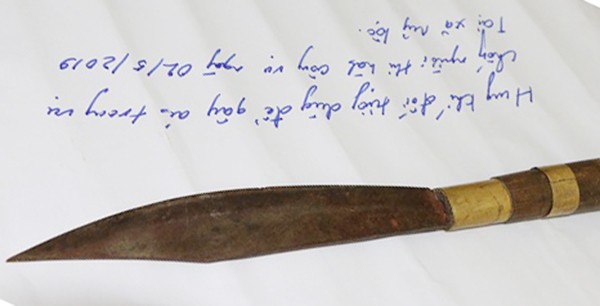 Hung khí đối tượng dùng để gây án trong vụ
chống người thi hành công vụ ngày 02/5/2019
Tại xã Mỹ Lộc.